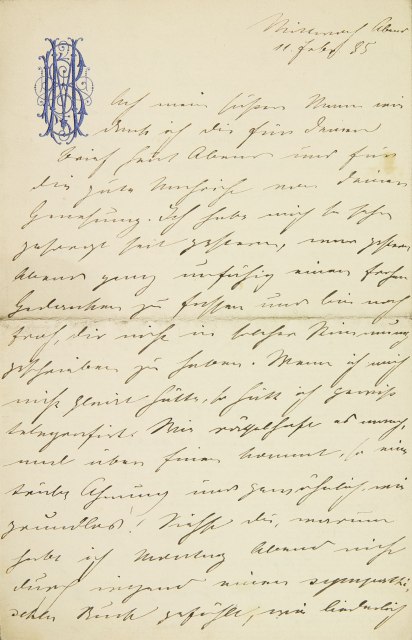 Mittwoch Abend
11. Febr 85
Ach mein süßer Mann wie
dank ich dir für deinen
Brief heut Abend und für
die gute Nachricht von deiner
Genesung. Ich habe mich so sehr
gesorgt seit gestern, war gestern
Abend ganz unfähig einen frohen
Gedanken zu fassen und bin noch
froh, dir nicht in solcher Stimmung
geschrieben zu haben. Wenn ich mich
nicht genirt hätte, so hätt ich gewiss
telegrafirt. Wie rägelhaft es manch
mal über Einen kommt, so eine
trübe Ahnung und gewöhnlich, wie
grundlos! Siehst du, warum
hab ich Montag Abend nicht
durch irgend einen sympathi-
schen Ruck gefühlt, wie liederlich